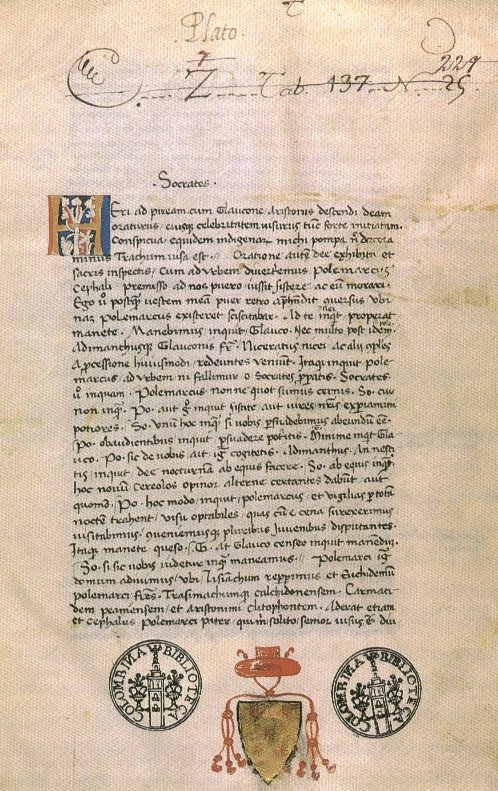 Plato.
7
Z Tab. 137 N 25
229
· Socrates ·
HEri ad pireum cum Glaucone Aristonis descendi deam
oraturus, eiusq celebritatem uisurus tūc forte initiatam.
Conspicua equidem indigenar michi pompa n decora
minus Trachum uisa est. Oratione autē dec exhibita et
sacris inspectis, Cum ad urbem diuertemus Polemarcus
Cephali premisso ad nos puero iussit sistere ac eū morari.
Ego uestem meā puer retro aphendit auersus ubi
nam Polemarcus existeret sciscitabar. Ad te inqt properat
manete. Manebimus inquit Glauco. Nec multo post idem
Adimanchusq Glauconis fr. Niceratus nicei ac alii
a pcessione huiusmodi redeuntes ueniūt. Itaq inquit pole
marcus ad urbem ni fallimur o Socrates ppatis. Socrates
inquam. Polemarcus non ne quot sumus cernis. So. cur
non inq. Po. aut inquit sistite aut uires nr̄as expiamini
potiores. So. Unū hoc inq si uobis psuadebimus abeundū
Po. obaudientibus inquit psuadere potitis. Minime inqt Gla
uco. Po. sic de uobis aut cogitetis. Adimanthus. An nesci
tis inquit dec nocturna ab equis facere. So. ab equis inq
hoc nouū cereolos opinor alterne certantes dabūt aut
quomō. Po. hoc modo inquit polemarcus, et uigilias p totā
noctē trahent, uisu optabiles, quas cū e cena surexerimus
uisitabimus, queniemusq pluribus iuuenibus disputantes.
Itaq manete queso. G. at Glauco censeo inquit manedū.
So. si sic uobis uidetur inq maneamus. Polemarci
domum adiuimus, ubi Lisiachum repperimus et Euchidemū
polemarci fres. Trasimachumq calchidonensem. Carmati
dem peamensem, et aristonimi clitophontem. Aderat etiam
et Cephalus Polemarci pater, qui m solito senior uisus ē diu
COLOMBINA BIBLIOTECA
COLOMBINA BIBLIOTECA